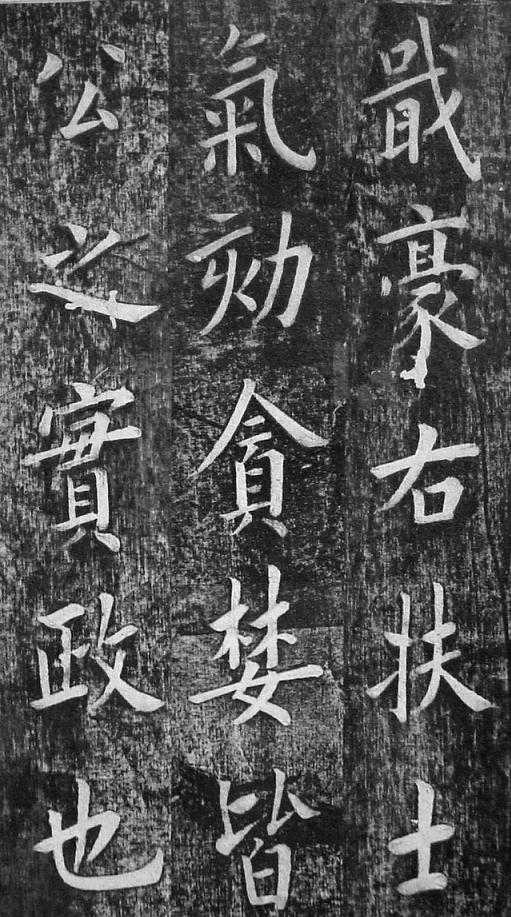 戢豪右扶士
氣劾貪婪皆
公之實政也